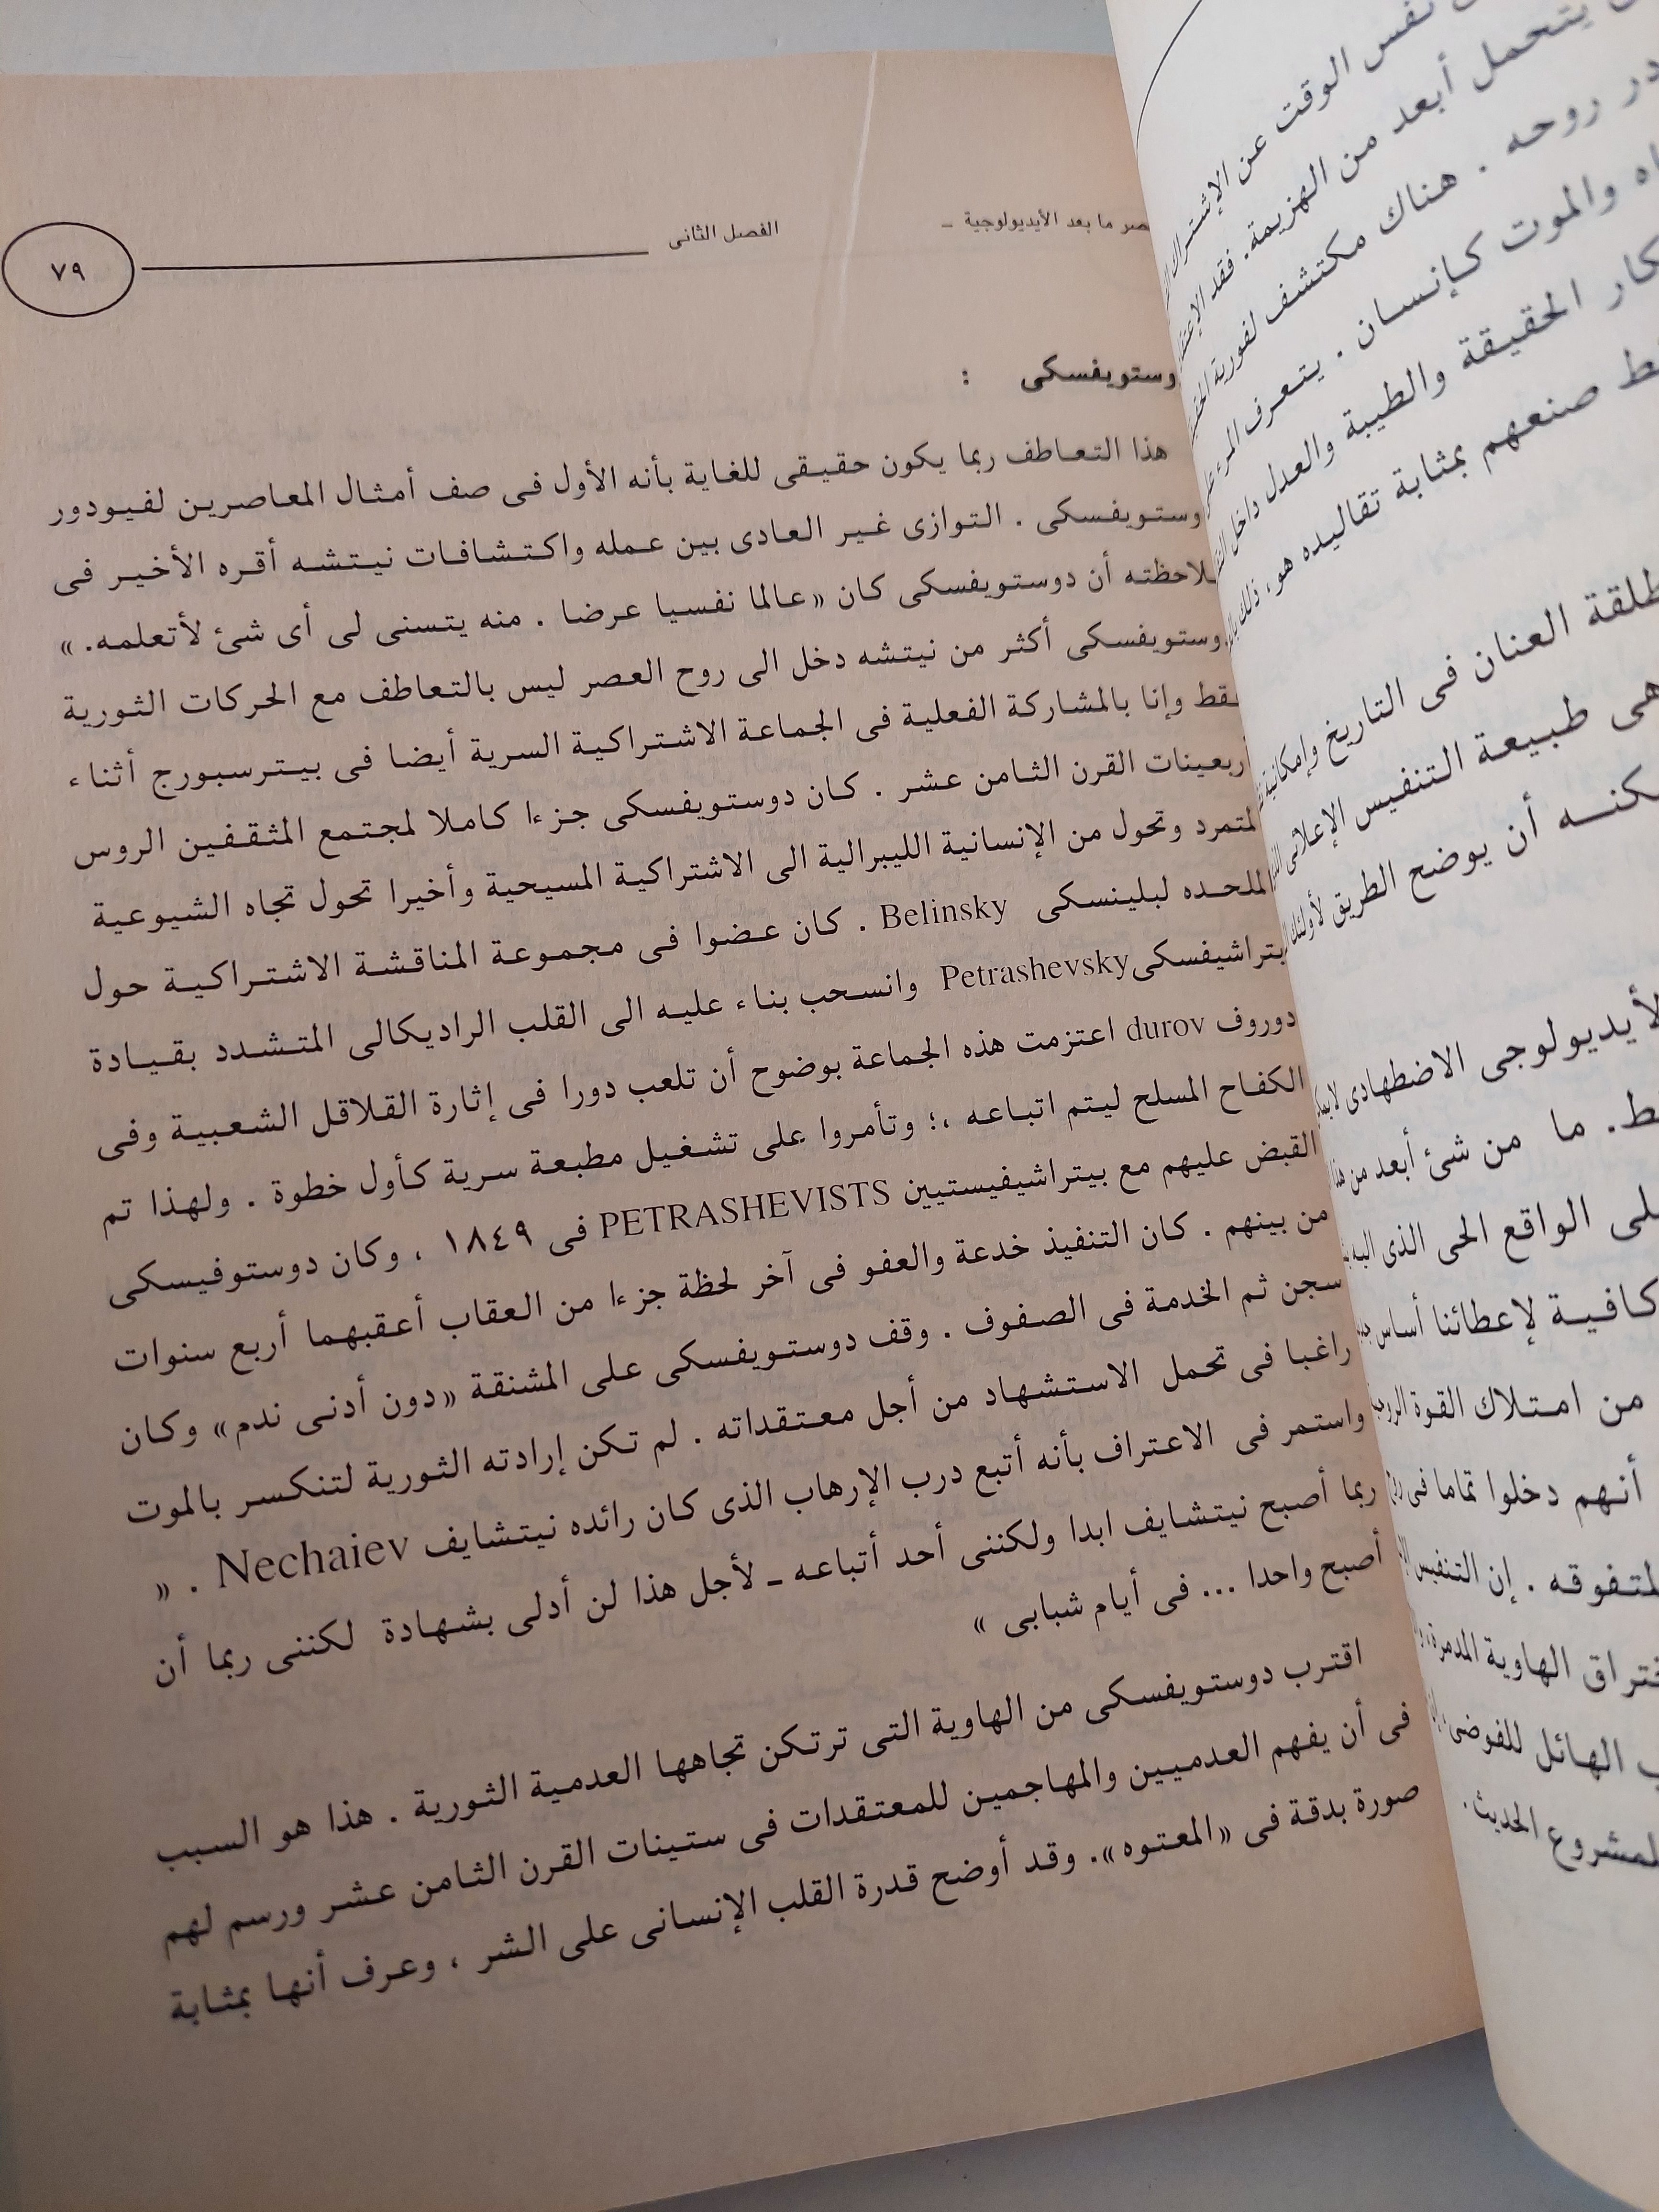 ما بعد الأيديولوجية ـ
الفصل الثانى
٧٩
وستويفسكى :
هذا التعاطف ربما يكون حقيقى للغاية بأنه الأول فى صف أمثال المعاصرين لفيودور
وستويفسكى . التوازى غير العادى بين عمله واكتشافات نيتشه أقره الأخير فى
لاحظته أن دوستويفسكى كان «عالما نفسيا عرضا . منه يتسنى لى أى شئ لأتعلمه. »
وستويفسكى أكثر من نيتشه دخل الى روح العصر ليس بالتعاطف مع الحركات الثورية
قط وإنا بالمشاركة الفعلية فى الجماعة الاشتراكية السرية أيضا فى بيترسبورج أثناء
ربعينات القرن الثامن عشر . كان دوستويفسكى جزءا كاملا لمجتمع المثقفين الروس
لمتمرد وتحول من الإنسانية الليبرالية الى الاشتراكية المسيحية وأخيرا تحول تجاه الشيوعية
الملحده لبلينسكى Belinsky . كان عضوا فى مجموعة المناقشة الاشتراكية حول
بتراشيفسكى Petrashevsky وانسحب بناء عليه الى القلب الراديكالى المتشدد بقيادة
دوروف durov اعتزمت هذه الجماعة بوضوح أن تلعب دورا فى إثارة القلاقل الشعبية وفى
الكفاح المسلح ليتم اتباعه ،؛ وتأمروا على تشغيل مطبعة سرية كأول خطوة . ولهذا تم
القبض عليهم مع بيتراشيفيستيين PETRASHEVISTS فى ١٨٤٩ ، وكان دوستوفيسكى
من بينهم . كان التنفيذ خدعة والعفو فى آخر لحظة جزءا من العقاب أعقبهما أربع سنوات
سجن ثم الخدمة فى الصفوف . وقف دوستويفسكى على المشنقة «دون أدنى ندم» وكان
راغبا فى تحمل الاستشهاد من أجل معتقداته . لم تكن إرادته الثورية لتنكسر بالموت
واستمر فى الاعتراف بأنه أتبع درب الإرهاب الذى كان رائده نيتشايف Nechaiev . «
ربما أصبح نيتشايف ابدا ولكننى أحد أتباعه ـ لأجل هذا لن أدلى بشهادة لكننى ربما أن
أصبح واحدا ... فى أيام شبابى »
اقترب دوستويفسكى من الهاوية التى ترتكن تجاهها العدمية الثورية . هذا هو السبب
فى أن يفهم العدميين والمهاجمين للمعتقدات فى ستينات القرن الثامن عشر ورسم لهم
صورة بدقة فى «المعتوه». وقد أوضح قدرة القلب الإنسانى على الشر ، وعرف أنها بمثابة
نفس الوقت عن الإشتراك
يتحمل أبعد من الهزيمة. فقد
در روحه . هناك مكتشف لفورية
اه والموت كإنسان . يتعرف المرء
كار الحقيقة والطيبة والعدل داخل
ط صنعهم بمثابة تقاليده هو، ذلك
طلقة العنان فى التاريخ وإمكانية
هى طبيعة التنفيس الإعلائى
كنه أن يوضح الطريق لأولئك
لأيديولوجى الاضطهادى
ط. ما من شئ أبعد من هذا
لى الواقع الحى الذى اليه
كافية لإعطائنا أساس
من امتلاك القوة الروحية
أنهم دخلوا تماما فى
لمتفوقه . إن التنفيس
ختراق الهاوية المدمرة،
الهائل للفوضى
لمشروع الحديث.